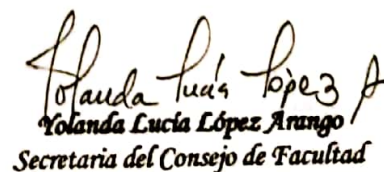 Yolanda Lucía López A
Yolanda Lucía López Arango
Secretaria del Consejo de Facultad